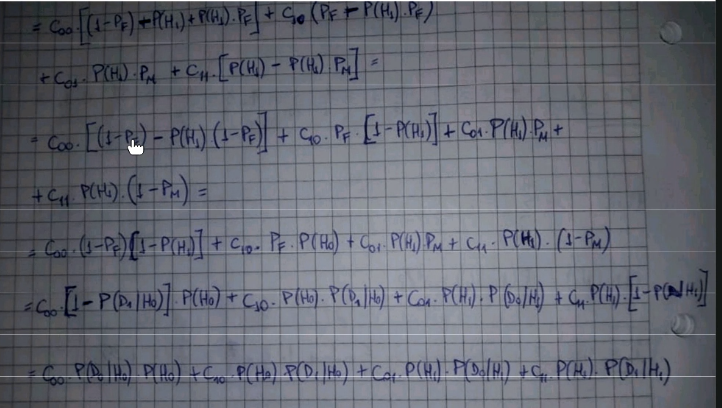 = C₀₀·[(1-P_F) - P(H₁) + P(H₁)·P_F] + C₁₀(P_F - P(H₁)·P_F)
+ C₀₁·P(H₁)·P_M + C₁₁·[P(H₁) - P(H₁)·P_M] =
= C₀₀·[(1-P_F) - P(H₁)(1-P_F)] + C₁₀·P_F·[1-P(H₁)] + C₀₁·P(H₁)·P_M +
+ C₁₁·P(H₁)·(1-P_M) =
= C₀₀·(1-P_F)[1-P(H₁)] + C₁₀·P_F·P(H₀) + C₀₁·P(H₁)·P_M + C₁₁·P(H₁)·(1-P_M)
= C₀₀·[1-P(D₁|H₀)]·P(H₀) + C₁₀·P(H₀)·P(D₁|H₀) + C₀₁·P(H₁)·P(D₀|H₁) + C₁₁·P(H₁)·[1-P(D₀|H₁)]
= C₀₀·P(D₀|H₀) P(H₀) + C₁₀·P(H₀) P(D₁|H₀) + C₀₁·P(H₁)·P(D₀|H₁) + C₁₁·P(H₁)·P(D₁|H₁)